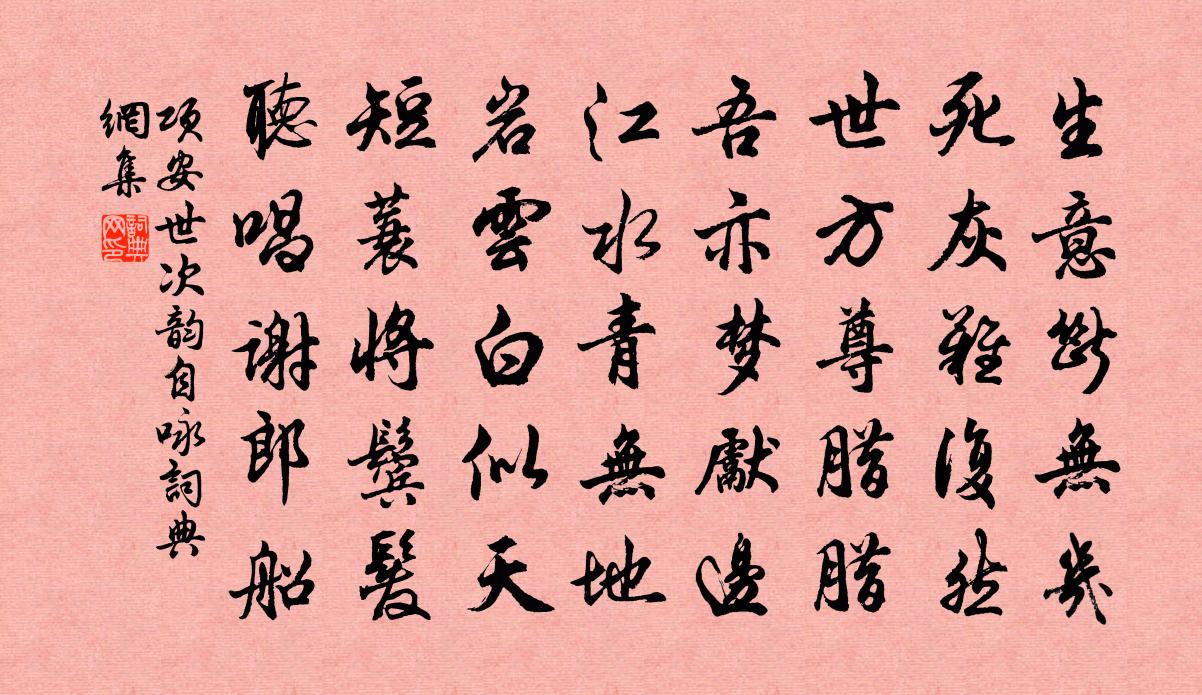 生意斷無幾
死灰難復然
世方尊腊腊
吾亦梦獻邊
江水青無地
岩雲白似天
短蓑將鬢髮
聽唱謝郎船
項安世次韵自咏詞典
網集
詞典網印